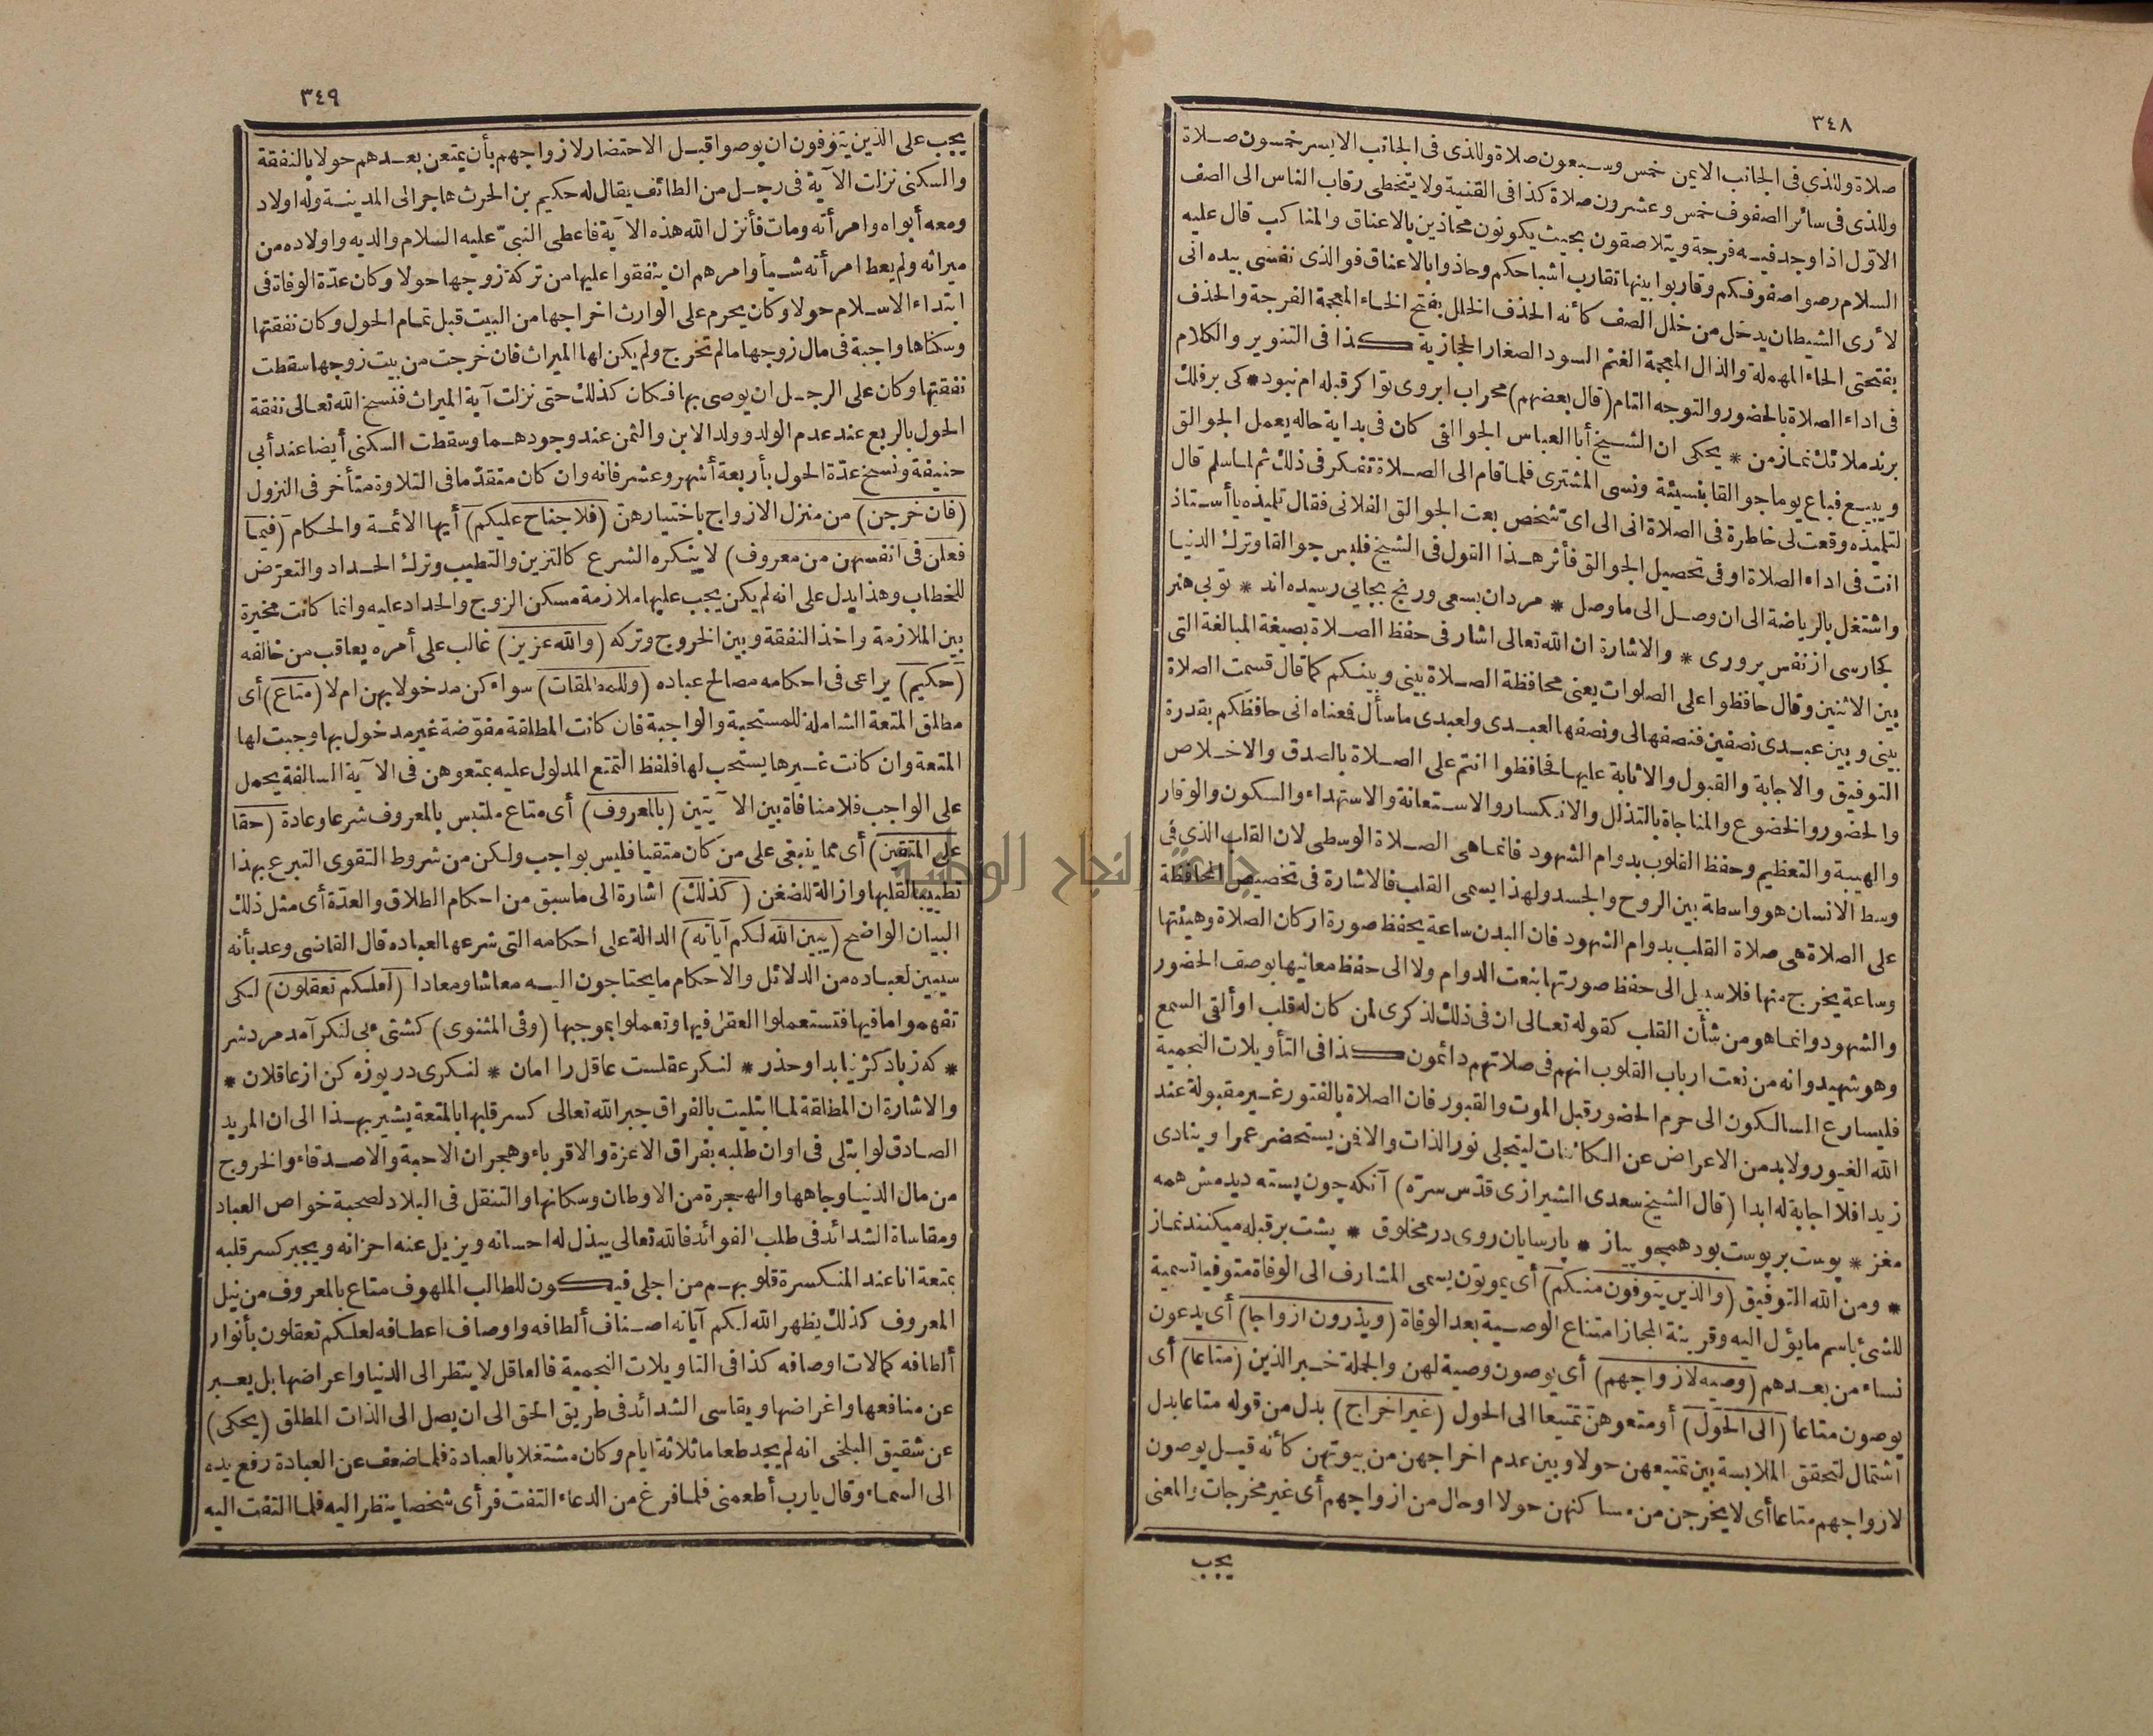 ٣٤٨
صلاة وللذى فى الجانب الايمن خمس وسبعون صلاة وللذى فى الجانب الايسر خمسون صلاة
وللذى فى سائر الصفوف خمس وعشرون صلاة كذا فى القنية ولا يتخطى رقاب الناس الى الصف
الاوّل اذا وجد فيه فرجة ويتلاصقون بحيث يكونون محاذين بالاعناق والمناكب قال عليه
السلام رصوا صفوفكم وقاربوا بينها تقارب اشباحكم وحاذوا بالاعناق فوالذى نفسى بيده انى
لأرى الشيطان يدخل من خلل الصف كأنه الحذف الخلل بفتح الخاء المعجمة الفرجة والحذف
بفتحتى الحاء المهملة والذال المعجمة الغنم السود الصغار الحجازية كذا فى التنوير والكلام
فى اداء الصلاة بالحضور والتوجه التام (قال بعضهم) محراب ابروى تو اكر قبله ام نبود * كى بر فلك
برند ملائك نماز من * يحكى ان الشيخ أبا العباس الجوالقى كان فى بداية حاله يعمل الجوالق
ويبيع فباع يوما جوالقا بنسيئة ونسى المشترى فلما قام الى الصلاة تفكر فى ذلك ثم لما سلم قال
لتلميذه وقعت لى خاطرة فى الصلاة انى الى اىّ شخص بعت الجوالق الفلانى فقال تلميذه يا أستاذ
انت فى اداء الصلاة او فى تحصيل الجوالق فأثر هذا القول فى الشيخ فلبس جوالقا وترك الدنيا
واشتغل بالرياضة الى ان وصل الى ما وصل * مردان بسعى ورنج بجايى رسيده اند * تو بى هنر
كجا رسى از نفس پرورى * والاشارة ان الله تعالى اشار فى حفظ الصلاة بصيغة المبالغة التى
بين الاثنين وقال حافظوا على الصلوات يعنى محافظة الصلاة بينى وبينكم كما قال قسمت الصلاة
بينى وبين عبدى نصفين فنصفها لى ونصفها لعبدى ولعبدى ما سأل فمعناه انى حافظكم بقدرة
التوفيق والاجابة والقبول والاثابة عليها فحافظوا انتم على الصلاة بالصدق والاخلاص
والحضور والخضوع والمناجاة بالتذلل والانكسار والاستعانة والاستهداء والسكون والوقار
والهيبة والتعظيم وحفظ القلوب بدوام الشهود فانما هى الصلاة الوسطى لان القلب الذى فى
وسط الانسان هو واسطة بين الروح والجسد ولهذا يسمى القلب فالاشارة فى تخصيص المحافظة
على الصلاة هى صلاة القلب بدوام الشهود فان البدن ساعة يحفظ صورة اركان الصلاة وهيئتها
وساعة يخرج منها فلا سبيل الى حفظ صورتها بنعت الدوام ولا الى حفظ معانيها بوصف الحضور
والشهود وانما هو من شأن القلب كقوله تعالى ان فى ذلك لذكرى لمن كان له قلب او ألقى السمع
وهو شهيد وانه من نعت ارباب القلوب انهم فى صلاتهم دائمون كذا فى التأويلات النجمية
فليسارع السالكون الى حرم الحضور قبل الموت والقبور فان الصلاة بالفتور غير مقبولة عند
الله الغيور ولا بد من الاعراض عن الكائنات ليتجلى نور الذات والا فمن يستحضر عمرا وينادى
زيدا فلا اجابة له ابدا (قال الشيخ سعدى الشيرازى قدّس سرّه) آنكه چون پسته ديدمش همه
مغز * پوست بر پوست بود همچو پياز * پارسايان روى در مخلوق * پشت بر قبله ميكنند نماز
* ومن الله التوفيق (والذين يتوفون منكم) أى يموتون يسمى المشارف الى الوفاة متوفيا تسمية
للشئ باسم ما يؤل اليه وقرينة المجاز امتناع الوصية بعد الوفاة (ويذرون ازواجا) أى يدعون
نساء من بعدهم (وصيه لازواجهم) أى يوصون وصية لهن والجملة خبر الذين (متاعا) أى
يوصون متاعا (الى الحول) أو متعوهنّ تمتيعا الى الحول (غير اخراج) بدل من قوله متاعا بدل
اشتمال لتحقق الملابسة بين تمتيعهن حولا وبين عدم اخراجهن من بيوتهن كأنه قيل يوصون
لازواجهم متاعا أى لا يخرجن من مساكنهن حولا او حال من ازواجهم أى غير مخرجات والمعنى
يجب
٣٤٩
يجب على الذين يتوفون ان يوصوا قبل الاحتضار لازواجهم بأن يمتعن بعدهم حولا بالنفقة
والسكنى نزلت الآية فى رجل من الطائف يقال له حكيم بن الحرث هاجر الى المدينة وله اولاد
ومعه أبواه وامرأته ومات فأنزل الله هذه الآية فاعطى النبىّ عليه السلام والديه واولاده من
ميراثه ولم يعط امرأته شيأ وامرهم ان ينفقوا عليها من تركة زوجها حولا وكان عدّة الوفاة فى
ابتداء الاسلام حولا وكان يحرم على الوارث اخراجها من البيت قبل تمام الحول وكان نفقتها
وسكناها واجبة فى مال زوجها مالم تخرج ولم يكن لها الميراث فان خرجت من بيت زوجها سقطت
نفقتها وكان على الرجل ان يوصى بها فكان كذلك حتى نزلت آية الميراث فنسخ الله تعالى نفقة
الحول بالربع عند عدم الولد وولد الابن والثمن عند وجودهما وسقطت السكنى أيضا عند أبى
حنيفة ونسخ عدّة الحول بأربعة أشهر وعشر فانه وان كان متقدّما فى التلاوة متأخر فى النزول
(فان خرجن) من منزل الازواج باختيارهنّ (فلا جناح عليكم) أيها الائمة والحكام (فيما
فعلن فى انفسهن من معروف) لا ينكره الشرع كالتزين والتطيب وترك الحداد والتعرّض
للخطاب وهذا يدل على انه لم يكن يجب عليها ملازمة مسكن الزوج والحداد عليه وانما كانت مخيرة
بين الملازمة واخذ النفقة وبين الخروج وتركه (والله عزيز) غالب على أمره يعاقب من خالفه
(حكيم) يراعى فى احكامه مصالح عباده (وللمطلقات) سواء كن مدخولا بهن ام لا (متاع) أى
مطلق المتعة الشاملة للمستحبة والواجبة فان كانت المطلقة مفوّضة غير مدخول بها وجبت لها
المتعة وان كانت غيرها يستحب لها فلفظ التمتع المدلول عليه بمتعوهن فى الآية السالفة يحمل
على الواجب فلا منافاة بين الآيتين (بالمعروف) أى متاع ملتبس بالمعروف شرعا وعادة (حقا
على المتقين) أى مما ينبغى على من كان متقيا فليس بواجب ولكن من شروط التقوى التبرع بهذا
تطييبا لقلبها وازالة للضغن (كذلك) اشارة الى ما سبق من احكام الطلاق والعدّة أى مثل ذلك
البيان الواضح (يبين الله لكم آياته) الدالة على احكامه التى شرعها لعباده قال القاضى وعد بأنه
سيبين لعباده من الدلائل والاحكام ما يحتاجون اليه معاشا ومعادا (لعلكم تعقلون) لكى
تفهموا ما فيها فتستعملوا العقل فيها وتعملوا بموجبها (وفى المثنوى) كشتى بى لنكر آمد مرد شر
* كه زباد كژ نيابد او حذر * لنكر عقلست عاقل را امان * لنكرى در يوزه كن از عاقلان *
والاشارة ان المطلقة لما ابتليت بالفراق جبر الله تعالى كسر قلبها بالمتعة يشير بهذا الى ان المريد
الصادق لو ابتلى فى اوان طلبه بفراق الاعزة والاقرباء وهجران الاحبة والاصدقاء والخروج
من مال الدنيا وجاهها والهجرة من الاوطان وسكانها والتنقل فى البلاد لصحبة خواص العباد
ومقاساة الشدائد فى طلب الفوائد فالله تعالى يبذل له احسانه ويزيل عنه احزانه ويجبر كسر قلبه
بمتعة انا عند المنكسرة قلوبهم من اجلى فيكون للطالب الملهوف متاع بالمعروف من نيل
المعروف كذلك يظهر الله لكم آياته اصناف ألطافه واوصاف اعطافه لعلكم تعقلون بأنوار
ألطافه كمالات اوصافه كذا فى التاويلات النجمية فالعاقل لا ينظر الى الدنيا واعراضها بل يعبر
عن منافعها واغراضها ويقاسى الشدائد فى طريق الحق الى ان يصل الى الذات المطلق (يحكى)
عن شقيق البلخى انه لم يجد طعاما ثلاثة ايام وكان مشتغلا بالعبادة فلما ضعف عن العبادة رفع يده
الى السماء وقال يارب أطعمنى فلما فرغ من الدعاء التفت فرأى شخصا ينظر اليه فلما التفت اليه
جامعة النجاح الوطنية